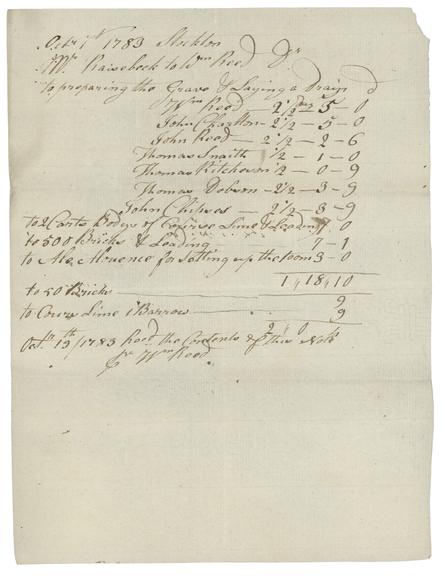 Octr 1st 1783 Stockton
Mr Raisebeck to Wm Reed Dr
to preparing the Grave & Laying a Drain d
Wm Reed — 2 1/2 Days 5 - 0
John Charlton - 2 1/2 - 5 - 0
John Reed — 2 1/2 - 2 - 6
Thomas Snaith 1/2 - 1 - 0
Thomas Kitcheson 1/2 - 0 - 9
Thomas Dobson - 2 1/2 - 3 - 9
John Chipses — 2 1/2 - 3 - 9
to 2 Carts Bodys of Course Lime & Leading 0
to 500 Bricks & Leading 7 - 1
to Ale Alowence for Setting up the toom 3 - 0
1 " 18 " 10
to 50 Bricks 9
to Cours Lime 1 Barrow 9
2 " 0
Octr 19th / 1783 Recd the Contents of this Note
pr Wm Reed